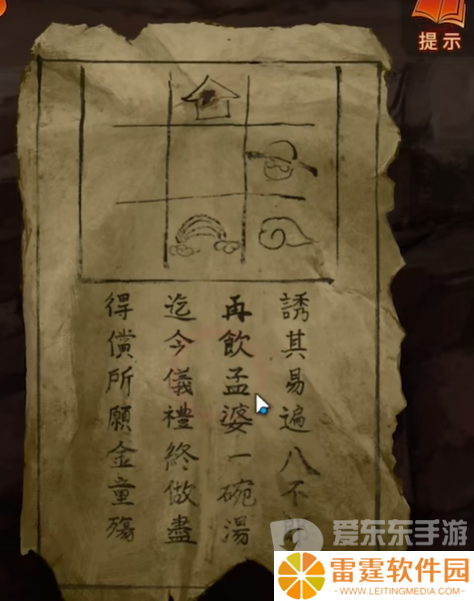 提示
誘其易遍八不
再飲孟婆一碗湯
迄今儀禮終做盡
得償所願金童殤
爱东东手游
雷霆软件园
WWW.LEITINGMEDIA.COM